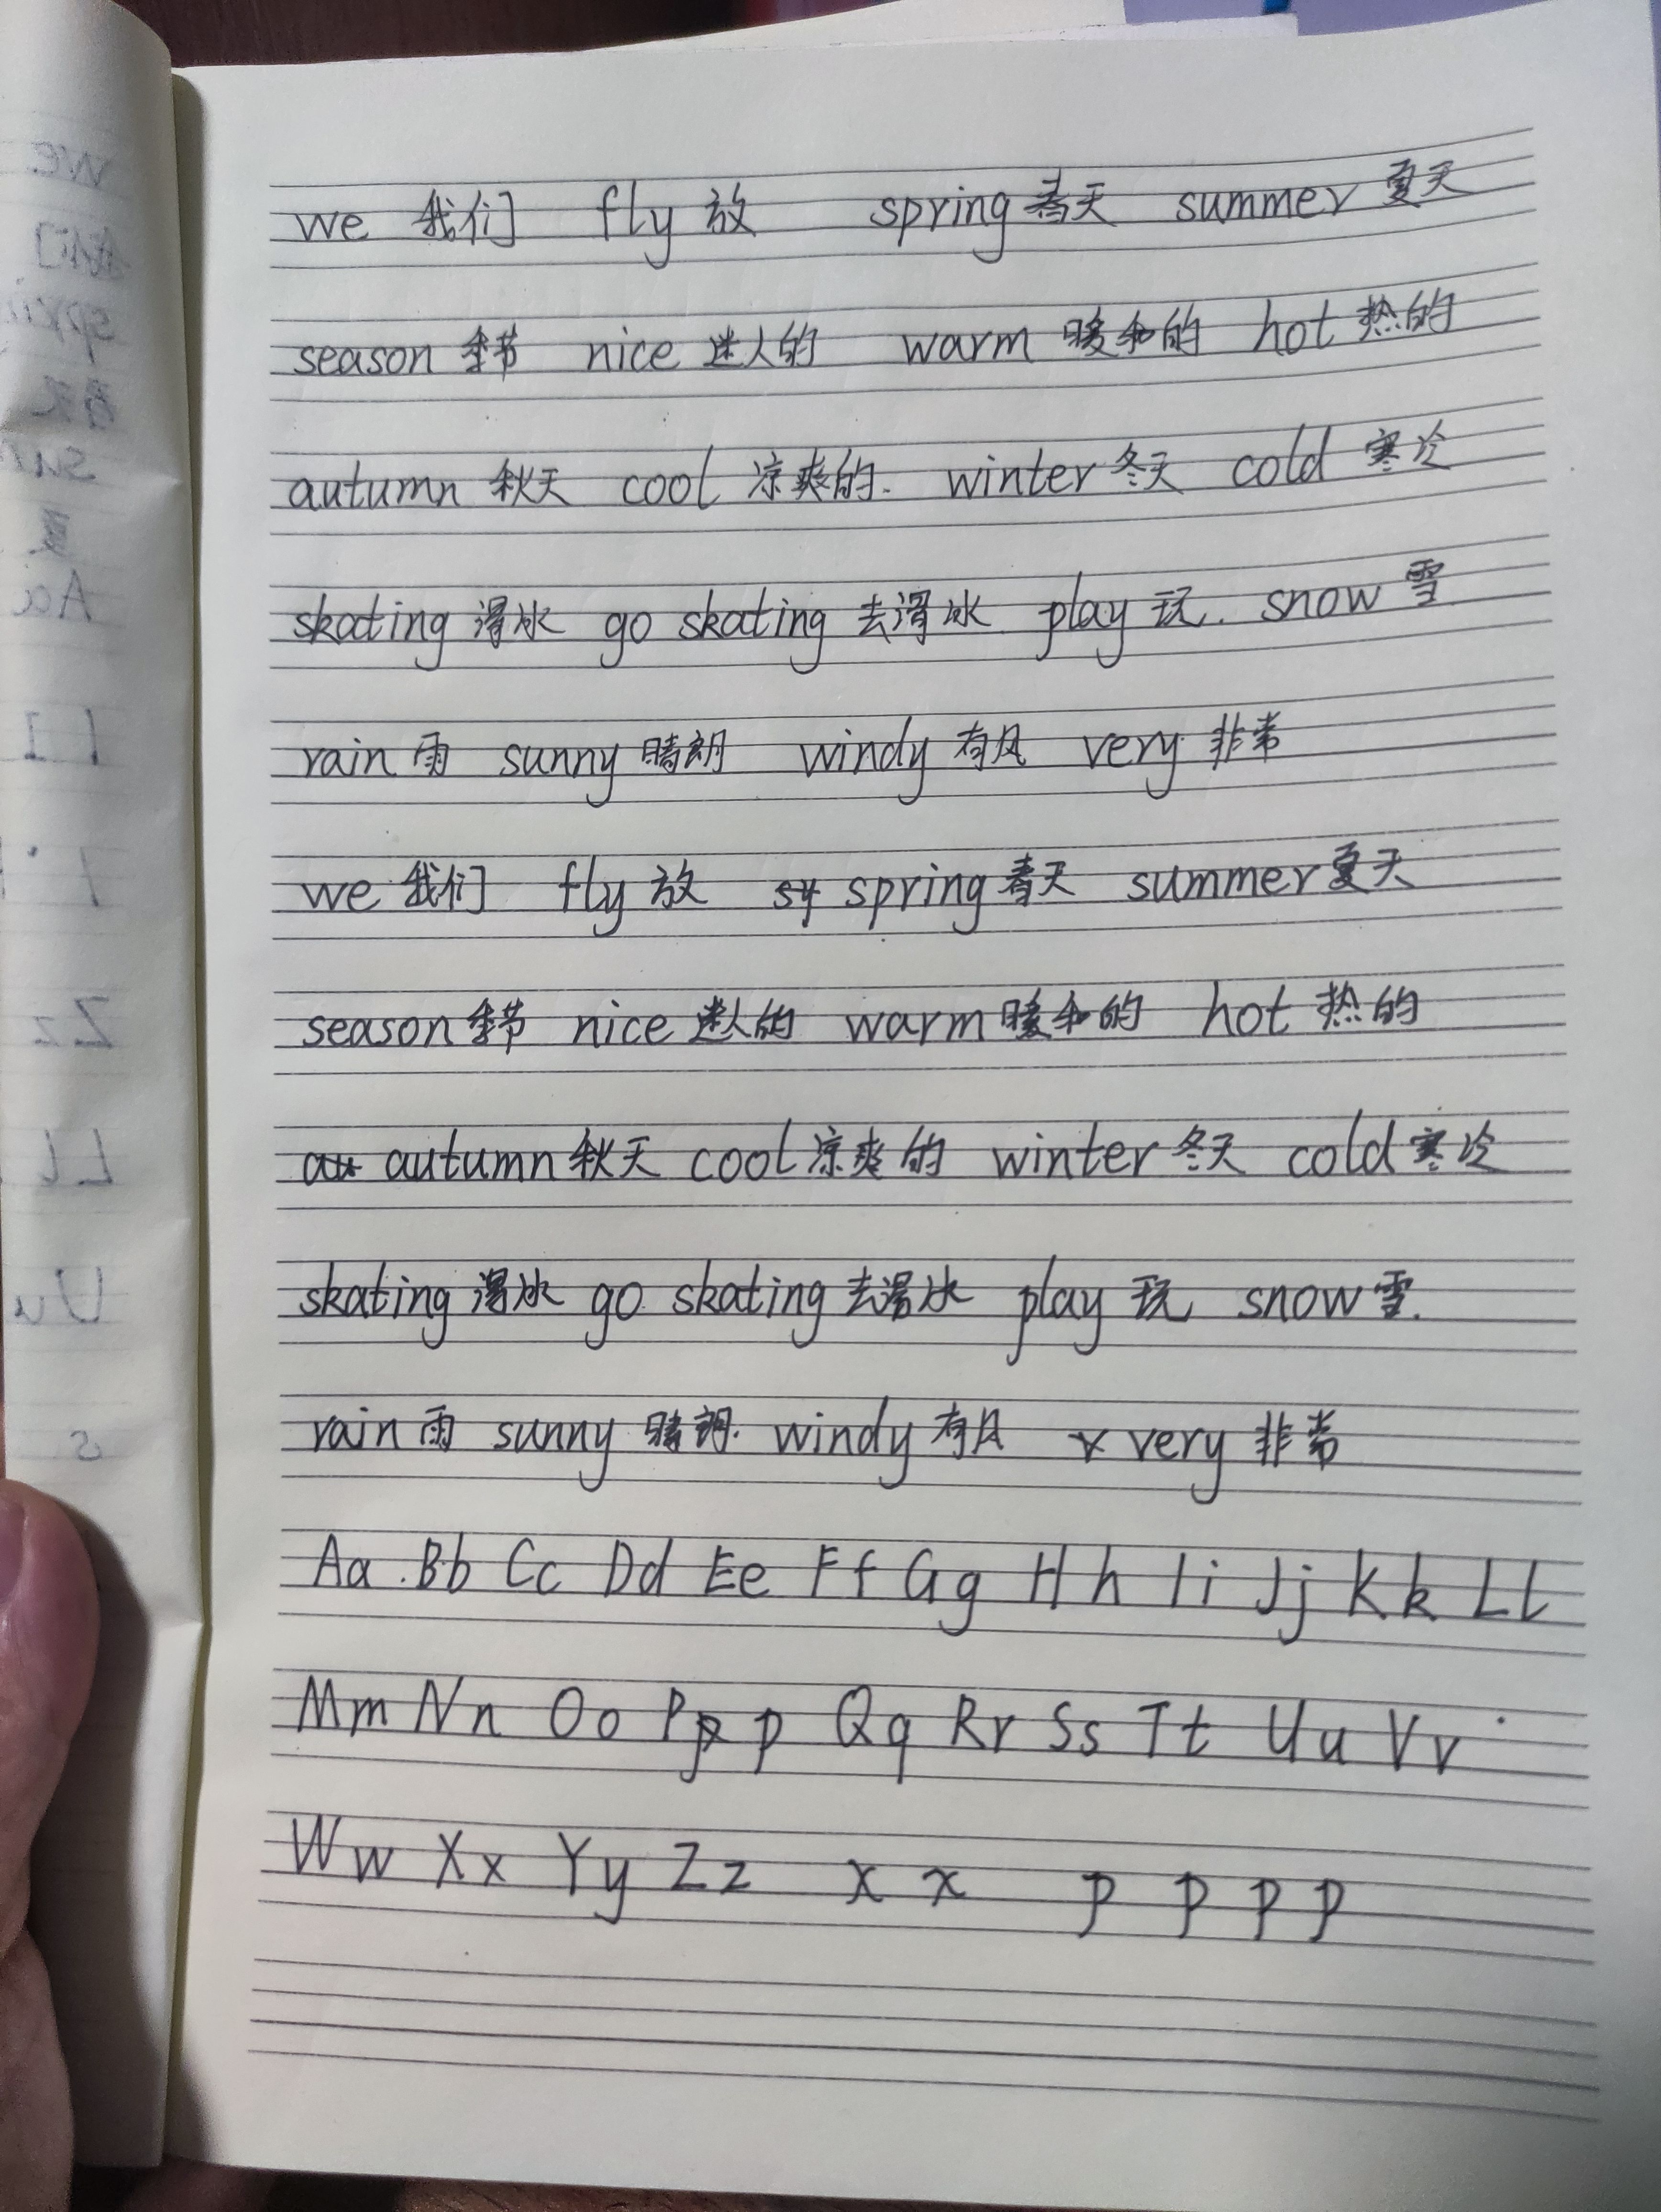 we 我们 fly 放 spring 春天 summer 夏天
season 季节 nice 迷人的 warm 暖和的 hot 热的
autumn 秋天 cool 凉爽的. winter 冬天 cold 寒冷
skating 滑冰 go skating 去滑冰 play 玩. snow 雪
rain 雨 sunny 晴朗 windy 有风 very 非常
we 我们 fly 放 sy spring 春天 summer 夏天
season 季节 nice 迷人的 warm 暖和的 hot 热的
au autumn 秋天 cool 凉爽的 winter 冬天 cold 寒冷
skating 滑冰 go skating 去滑冰 play 玩 snow 雪.
rain 雨 sunny 晴朗. windy 有风 v very 非常
Aa Bb Cc Dd Ee Ff Gg Hh Ii Jj Kk Ll
Mm Nn Oo Pp p Qq Rr Ss Tt Uu Vv
Ww Xx Yy Zz x x p p p p